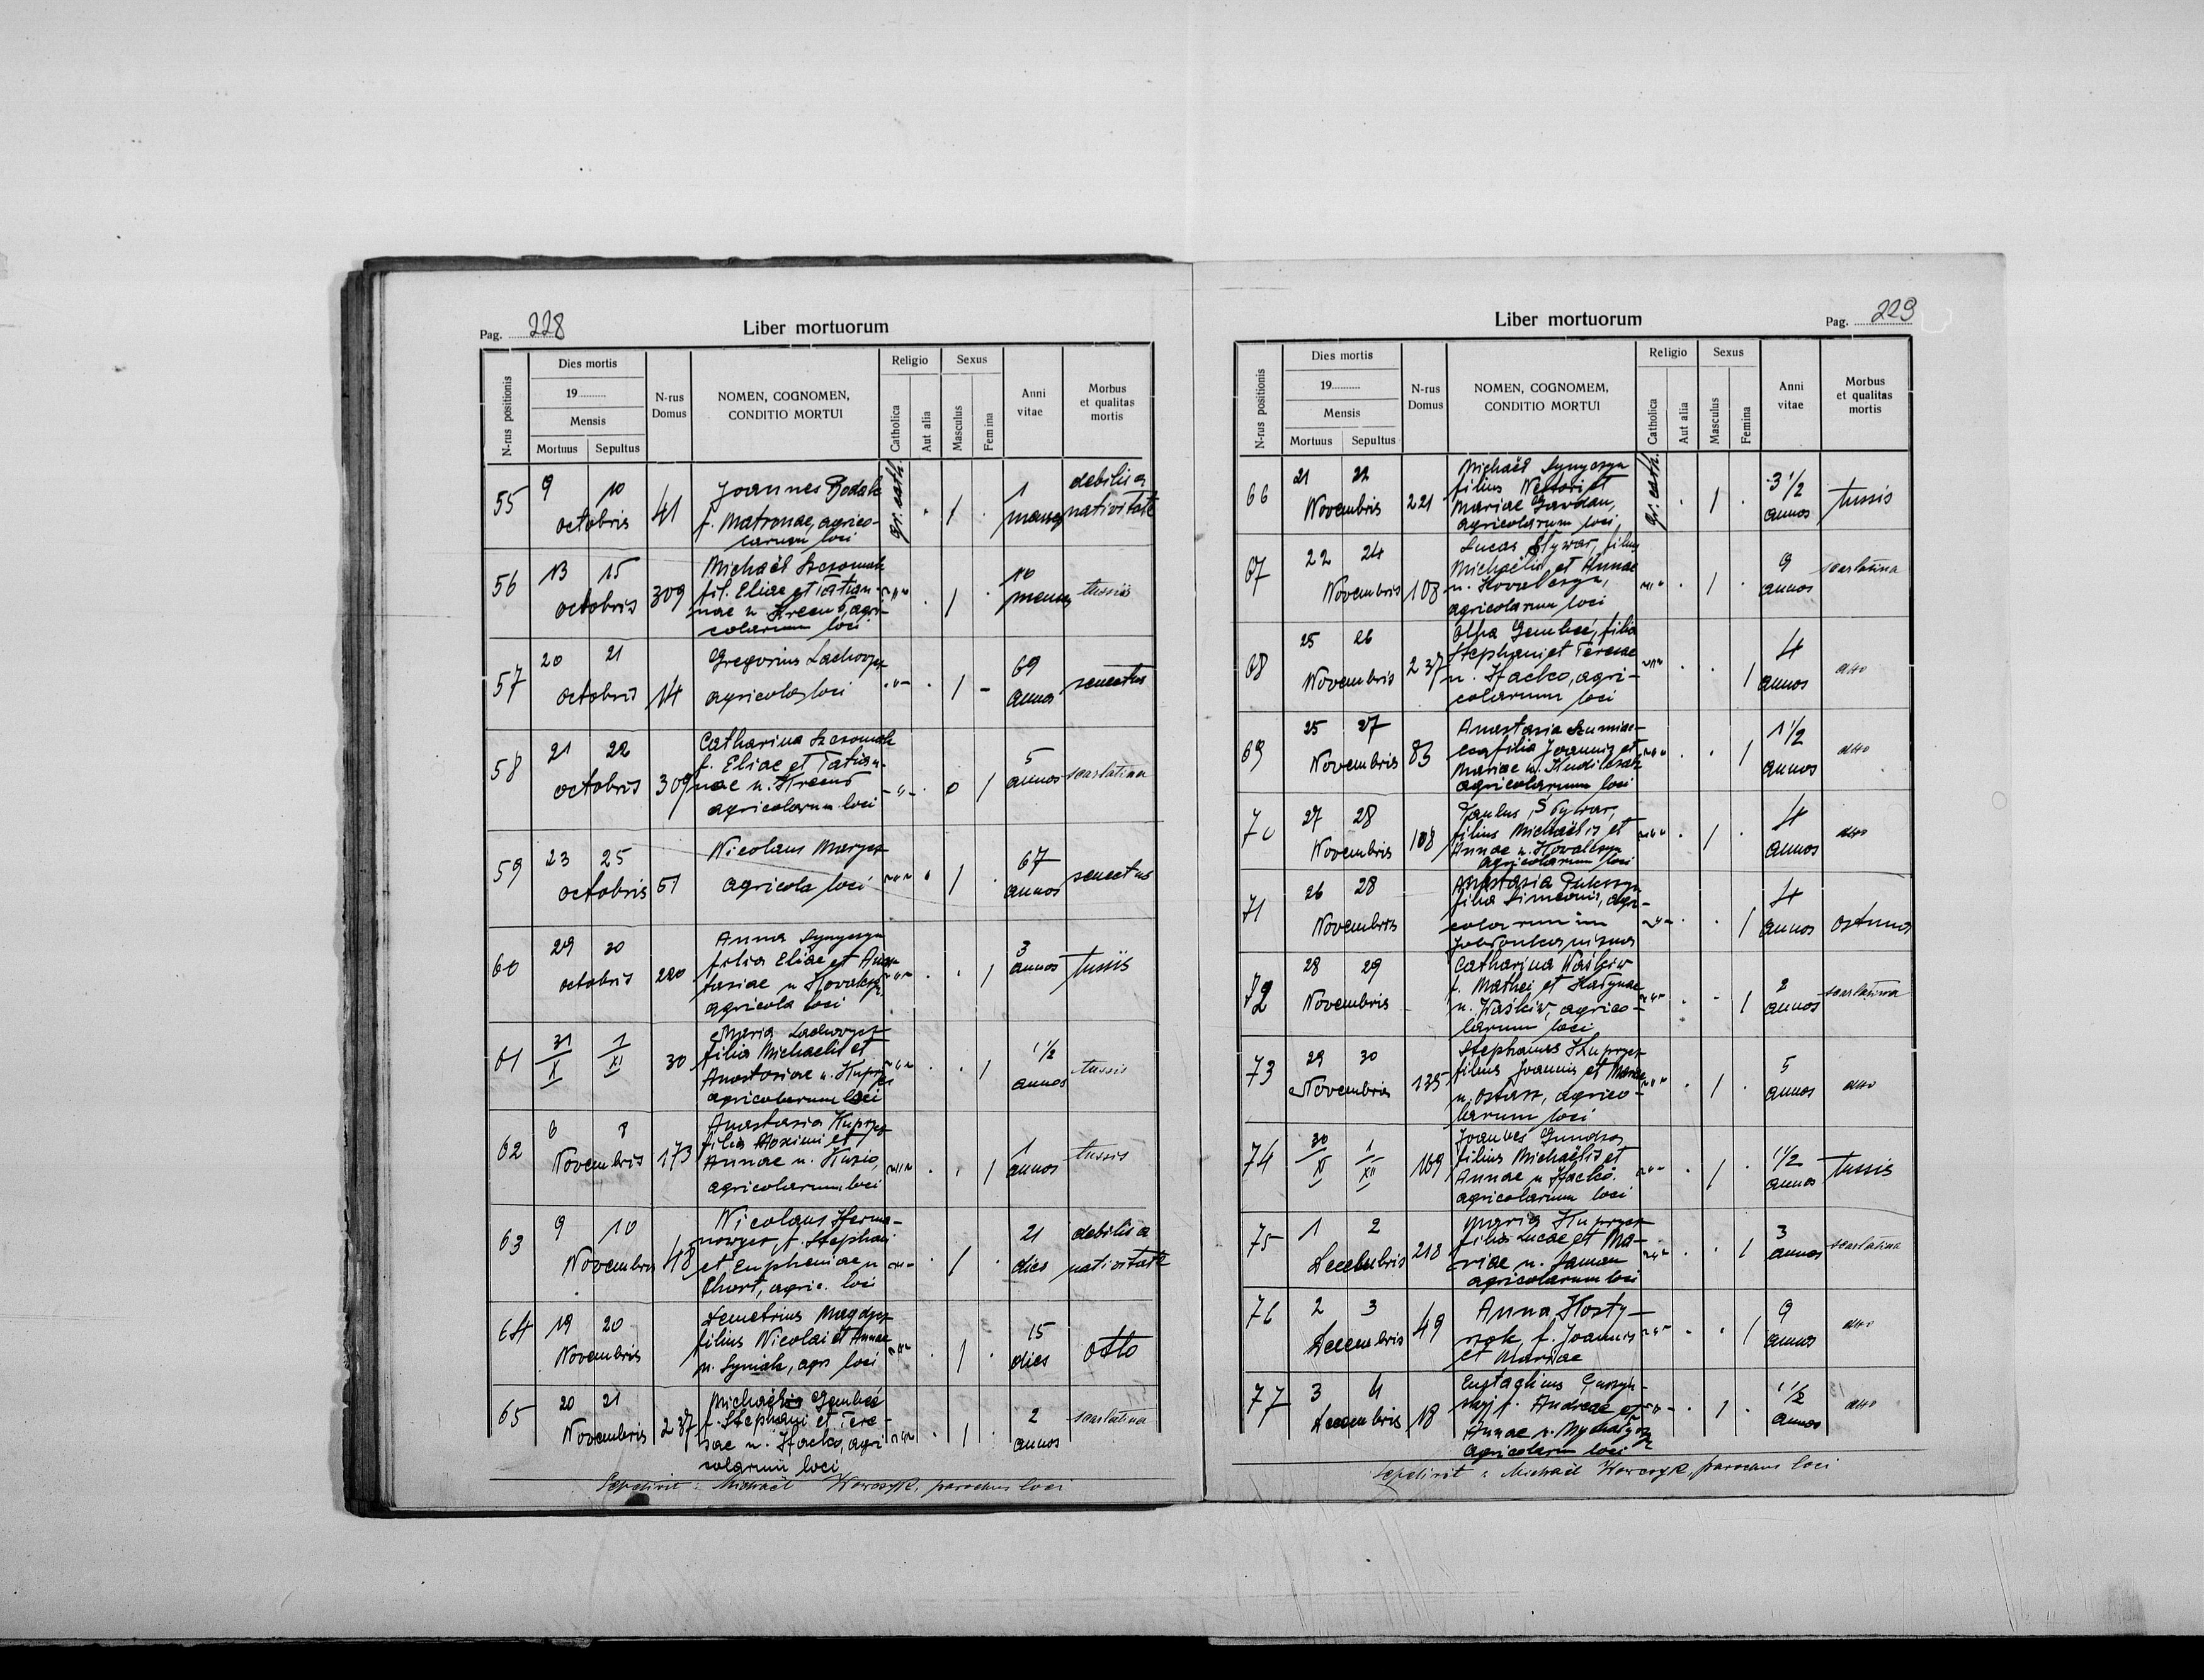 Pag. 228
Liber mortuorum
N-rus positionis
Dies mortis
19
Mensis
Mortuus
Sepultus
N-rus
Domus
NOMEN, COGNOMEN,
CONDITIO MORTUI
Religio
Catholica
Aut alia
Sexus
Masculus
Femina
Anni
vitae
Morbus
et qualitas
mortis
55
9 10
octobris
41
Joannes Bodak
f. Matronae, agrico-
larum loci
gr. cath.
1
mensis
debilis a
nativitate
56
13 15
octobris
309
Michaël Szczomak
fil. Eliae et Tatian-
nae n. agri-
colarum loci
10
menses
tussis
57
20 21
octobris
14
Gregorius
agricola loci
69
annos
senectus
58
21 22
octobris
309
Catharina Szczomak
f. Eliae et Tatian-
nae n.
agricolarum loci
5
annos
scarlatina
59
23 25
octobris
51
Nicolaus
agricola loci
67
annos
senectus
60
29 30
octobris
220
Anna
filia Eliae et Anas-
tasiae n
agricola loci
3
annos
tussis
61
31 1
X XI
30
Maria
filia Michaelis et
Anastasiae n.
agricolarum loci
1 1/2
annos
tussis
62
6 8
Novembris
173
Anastasia
filia Maximi et
Annae n. Kuzio,
agricolarum loci
1
annos
tussis
63
9 10
Novembris
48
Nicolaus
f. Stephani
et Eupheniae n
Chort, agric. loci
21
dies
debilis a
nativitate
64
19 20
Novembris
Demetrius
filius Nicolai et Annae
n. Syniak, agr. loci
15
dies
otto
65
20 21
Novembris
237
Michaëlis
f. Stephani et Tere-
sae n. Hacko, agri
colarum loci
2
annos
scarlatina
Sepelivit: Michaël parochus loci
Liber mortuorum
Pag. 229
N-rus positionis
Dies mortis
19
Mensis
Mortuus
Sepultus
N-rus
Domus
NOMEN, COGNOMEM,
CONDITIO MORTUI
Religio
Catholica
Aut alia
Sexus
Masculus
Femina
Anni
vitae
Morbus
et qualitas
mortis
66
21 22
Novembris
221
Michaël
filius Nestori et
Mariae
agricolarum loci,
gr. cath.
3 1/2
annos
tussis
67
22 24
Novembris
108
Lucas Stywar, filius
Michaëlis et Annae
n.
agricolarum loci
9
annos
scarlatina
68
25 26
Novembris
237
Olha filia
Stephani et Teresae
n. Hacko, agri-
colarum loci
4
annos
otto
69
25 27
Novembris
83
Anastasia
filia Joannis et
Mariae n.
agricolarum loci
1 1/2
annos
otto
70
27 28
Novembris
108
Paulus Stywar,
filius Michaëlis et
Annae n.
agricolarum loci
4
annos
otto
71
26 28
Novembris
Anastasia
filia Simeonis, agri-
colarum in
4
annos
72
28 29
Novembris
Catharina Waśkiw
f. Mathei et
n. Waśkiw, agrico-
larum loci
2
annos
scarlatina
73
29 30
Novembris
135
Stephanus
filius Joannis et Mariae
n. agrico-
larum loci
5
annos
otto
74
30 1
XI XII
169
Joannes
filius Michaëlis et
Annae n Hacko.
agricolarum loci
1 1/2
annos
tussis
75
1 2
Decembris
218
Maria
filia Lucae et Ma-
riae n.
agricolarum loci
3
annos
scarlatina
76
2 3
Decembris
49
Anna
f. Joannis
et Mariae
9
annos
otto
77
3 4
Decembris
18
Eustachius
f. Andreae et
Annae n.
agricolarum loci
1 1/2
annos
otto
Sepelivit: Michaël parochus loci